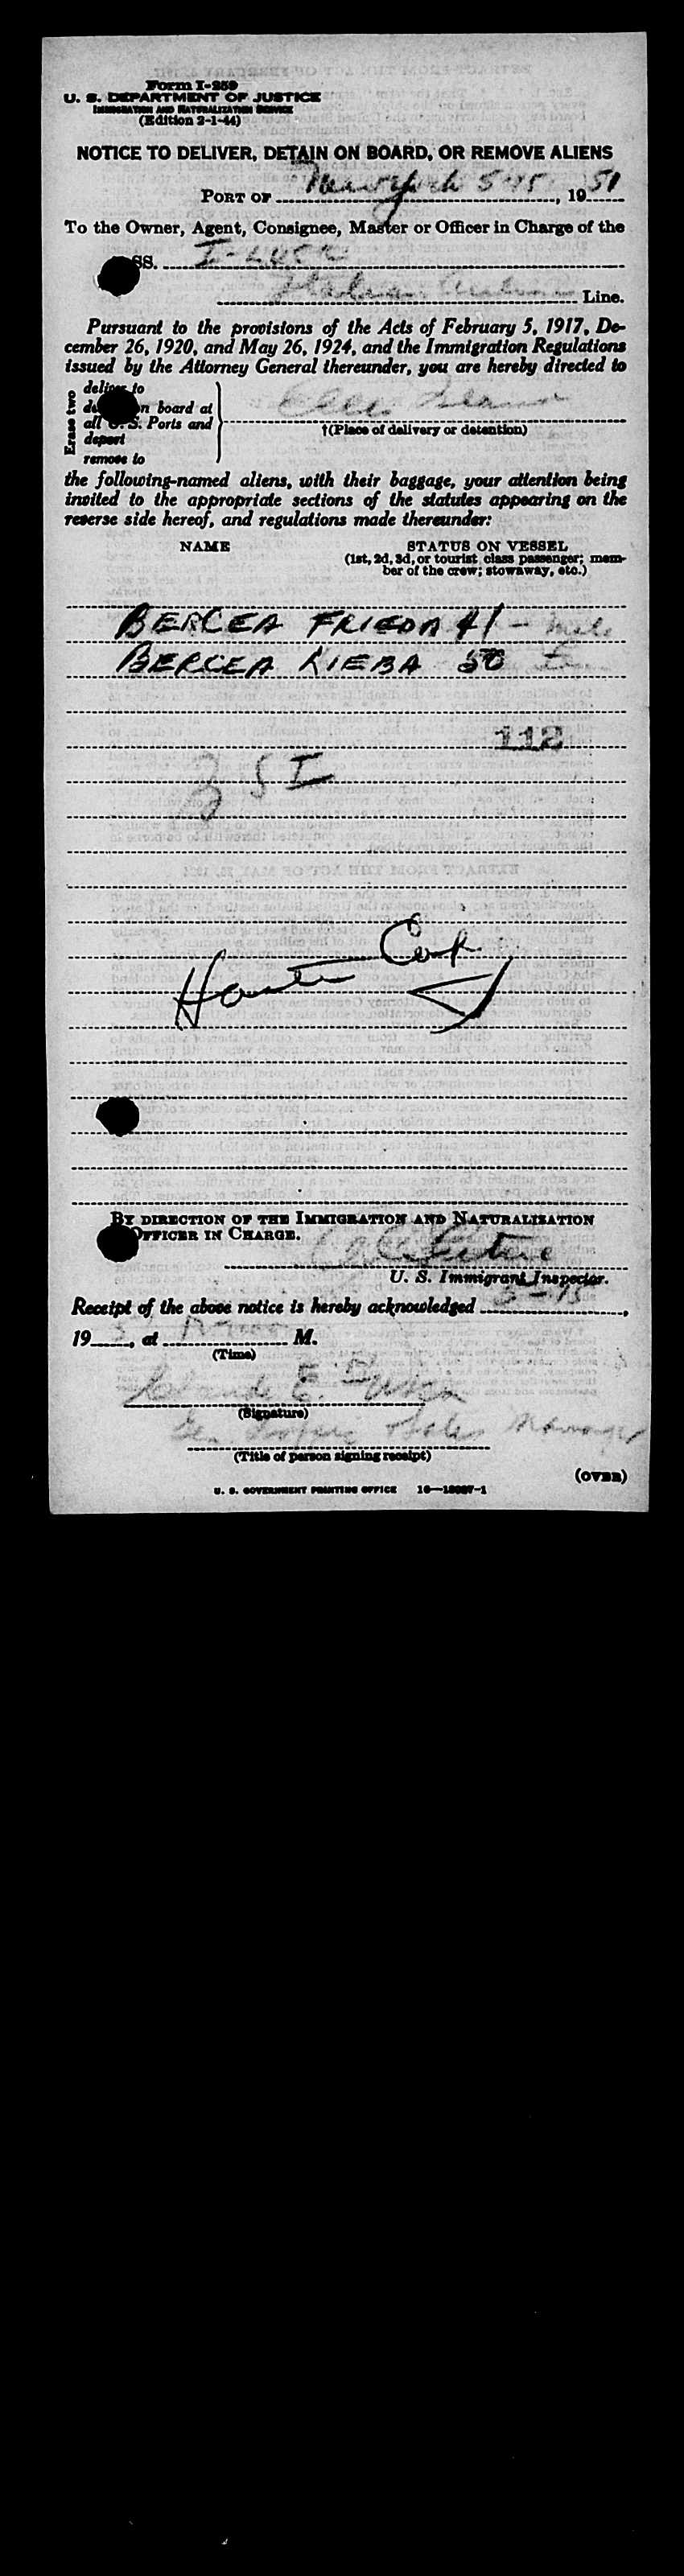 Form I-259
U. S. DEPARTMENT OF JUSTICE
IMMIGRATION AND NATURALIZATION SERVICE
(Edition 2-1-44)
NOTICE TO DELIVER, DETAIN ON BOARD, OR REMOVE ALIENS
PORT OF New York 5-15, 1951
To the Owner, Agent, Consignee, Master or Officer in Charge of the
SS. I-
Italian Line.
Pursuant to the provisions of the Acts of February 5, 1917, De-
cember 26, 1920, and May 26, 1924, and the Immigration Regulations
issued by the Attorney General thereunder, you are hereby directed to
Erase two
deliver to
on board at
all U. S. Ports and
deport
remove to
Ellis Island
†(Place of delivery or detention)
the following-named aliens, with their baggage, your attention being
invited to the appropriate sections of the statutes appearing on the
reverse side hereof, and regulations made thereunder:
NAME STATUS ON VESSEL
(1st, 2d, 3d, or tourist class passenger; mem-
ber of the crew; stowaway, etc.)
BERCEA FRIEDA 41 -
BERCEA LIEBA 50
112
S I
BY DIRECTION OF THE IMMIGRATION AND NATURALIZATION
OFFICER IN CHARGE.
U. S. Immigrant Inspector.
Receipt of the above notice is hereby acknowledged 5-15,
19, at M.
(Time)
E.
(Signature)
Sales Manager
(Title of person signing receipt)
(OVER)
U. S. GOVERNMENT PRINTING OFFICE